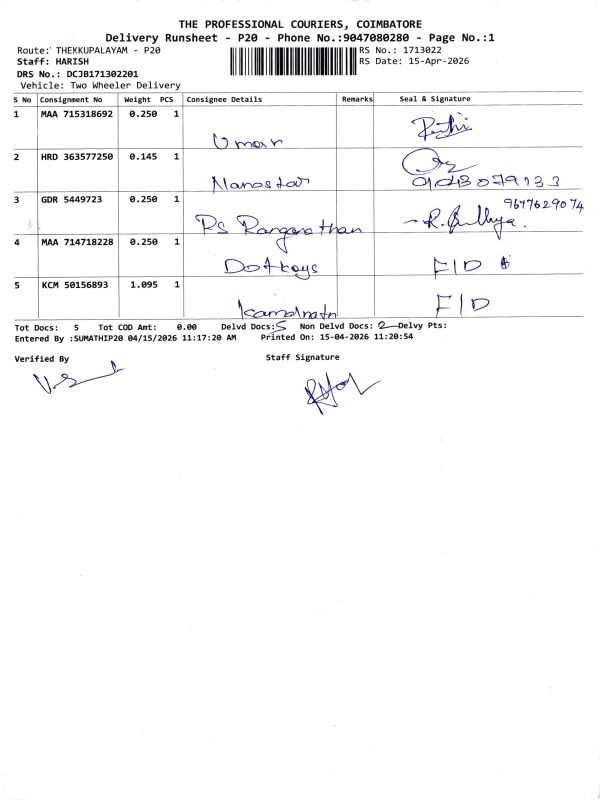 THE PROFESSIONAL COURIERS, COIMBATORE
Delivery Runsheet - P20 - Phone No.:9047080280 - Page No.:1
Route: THEKKUPALAYAM - P20 RS No.: 1713022
Staff: HARISH RS Date: 15-Apr-2026
DRS No.: DCJB171302201
Vehicle: Two Wheeler Delivery
S No Consignment No Weight PCS Consignee Details Remarks Seal & Signature
1 MAA 715318692 0.250 1
Umar
2 HRD 363577250 0.145 1
3 GDR 5449723 0.250 1
9677629074
Ps Ranganathan
4 MAA 714718228 0.250 1
Dotkays F/D
5 KCM 50156893 1.095 1
F/D
Tot Docs: 5 Tot COD Amt: 0.00 Delvd Docs: 5 Non Delvd Docs: 2 Delvy Pts:
Entered By :SUMATHIP20 04/15/2026 11:17:20 AM Printed On: 15-04-2026 11:20:54
Verified By Staff Signature